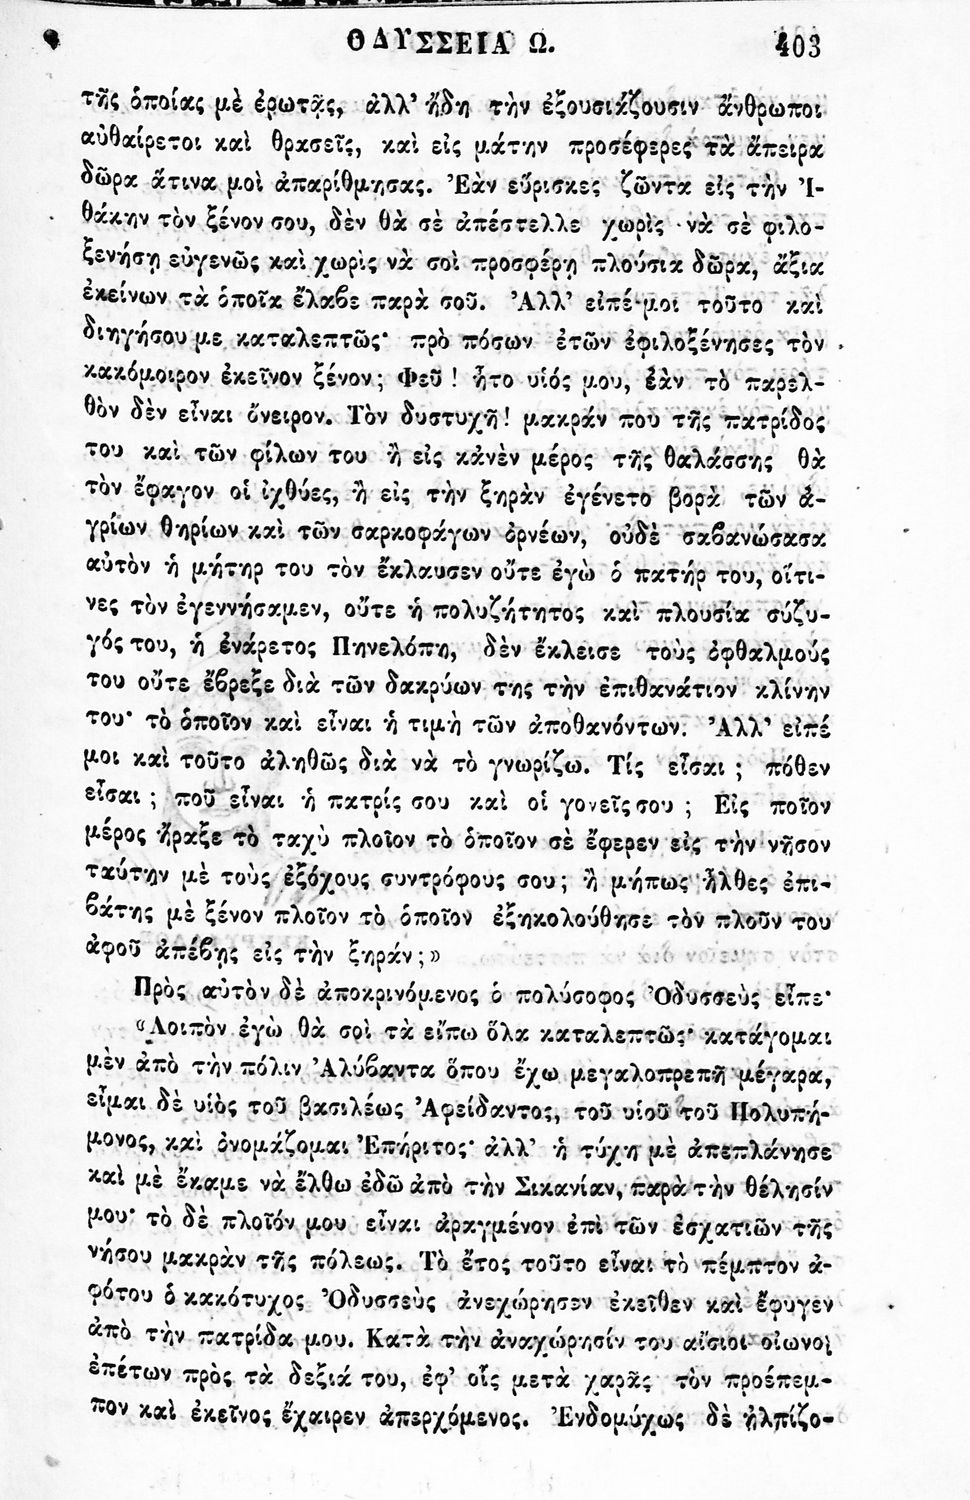 ΟΔΥΣΣΕΙΑ Ω. 403
τῆς ὁποίας μὲ ἐρωτᾷς, ἀλλ’ ἤδη τὴν ἐξουσιάζουσιν ἄνθρωποι
αὐθαίρετοι καὶ θρασεῖς, καὶ εἰς μάτην προσέφερες τὰ ἄπειρα
δῶρα ἅτινα μοὶ ἀπαρίθμησας. Ἐὰν εὕρισκες ζῶντα εἰς τὴν Ἰ-
θάκην τὸν ξένον σου, δὲν θὰ σὲ ἀπέστελλε χωρὶς νὰ σὲ φιλο-
ξενήσῃ εὐγενῶς καὶ χωρὶς νὰ σοὶ προσφέρῃ πλούσια δῶρα, ἄξια
ἐκείνων τὰ ὁποῖα ἔλαβε παρὰ σοῦ. Ἀλλ’ εἰπέ μοι τοῦτο καὶ
διηγήσου με καταλεπτῶς· πρὸ πόσων ἐτῶν ἐφιλοξένησες τὸν
κακόμοιρον ἐκεῖνον ξένον; Φεῦ! ἦτο υἱός μου, ἐὰν τὸ παρελ-
θὸν δὲν εἶναι ὄνειρον. Τὸν δυστυχῆ! μακράν που τῆς πατρίδος
του καὶ τῶν φίλων του ἢ εἰς κἀνὲν μέρος τῆς θαλάσσης θὰ
τὸν ἔφαγον οἱ ἰχθύες, ἢ εἰς τὴν ξηρὰν ἐγένετο βορὰ τῶν ἀ-
γρίων θηρίων καὶ τῶν σαρκοφάγων ὀρνέων, οὐδὲ σαβανώσασα
αὐτὸν ἡ μήτηρ του τὸν ἔκλαυσεν οὔτε ἐγὼ ὁ πατήρ του, οἵτι-
νες τὸν ἐγεννήσαμεν, οὔτε ἡ πολυζήτητος καὶ πλουσία σύζυ-
γός του, ἡ ἐνάρετος Πηνελόπη, δὲν ἔκλεισε τοὺς ὀφθαλμούς
του οὔτε ἔβρεξε διὰ τῶν δακρύων της τὴν ἐπιθανάτιον κλίνην
του· τὸ ὁποῖον καὶ εἶναι ἡ τιμὴ τῶν ἀποθανόντων. Ἀλλ’ εἰπέ
μοι καὶ τοῦτο ἀληθῶς διὰ νὰ τὸ γνωρίζω. Τίς εἶσαι; πόθεν
εἶσαι; ποῦ εἶναι ἡ πατρίς σου καὶ οἱ γονεῖς σου; Εἰς ποῖον
μέρος ἤραξε τὸ ταχὺ πλοῖον τὸ ὁποῖον σὲ ἔφερεν εἰς τὴν νῆσον
ταύτην μὲ τοὺς ἐξόχους συντρόφους σου; ἢ μήπως ἦλθες ἐπι-
βάτης μὲ ξένον πλοῖον τὸ ὁποῖον ἐξηκολούθησε τὸν πλοῦν του
ἀφοῦ ἀπέβης εἰς τὴν ξηράν;»
Πρὸς αὐτὸν δὲ ἀποκρινόμενος ὁ πολύσοφος Ὀδυσσεὺς εἶπε·
«Λοιπὸν ἐγὼ θὰ σοὶ τὰ εἴπω ὅλα καταλεπτῶς· κατάγομαι
μὲν ἀπὸ τὴν πόλιν Ἀλύβαντα ὅπου ἔχω μεγαλοπρεπῆ μέγαρα,
εἶμαι δὲ υἱὸς τοῦ βασιλέως Ἀφείδαντος, τοῦ υἱοῦ τοῦ Πολυπή-
μονος, καὶ ὀνομάζομαι Ἐπήριτος· ἀλλ’ ἡ τύχη μὲ ἀπεπλάνησε
καὶ μὲ ἔκαμε νὰ ἔλθω ἐδῶ ἀπὸ τὴν Σικανίαν, παρὰ τὴν θέλησίν
μου· τὸ δὲ πλοῖόν μου εἶναι ἀραγμένον ἐπὶ τῶν ἐσχατιῶν τῆς
νήσου μακρὰν τῆς πόλεως. Τὸ ἔτος τοῦτο εἶναι τὸ πέμπτον ἀ-
φότου ὁ κακότυχος Ὀδυσσεὺς ἀνεχώρησεν ἐκεῖθεν καὶ ἔφυγεν
ἀπὸ τὴν πατρίδα μου. Κατὰ τὴν ἀναχώρησίν του αἴσιοι οἰωνοὶ
ἐπέτων πρὸς τὰ δεξιά του, ἐφ’ οἷς μετὰ χαρᾶς τὸν προέπεμ-
πον καὶ ἐκεῖνος ἔχαιρεν ἀπερχόμενος. Ἐνδομύχως δὲ ἠλπίζο-